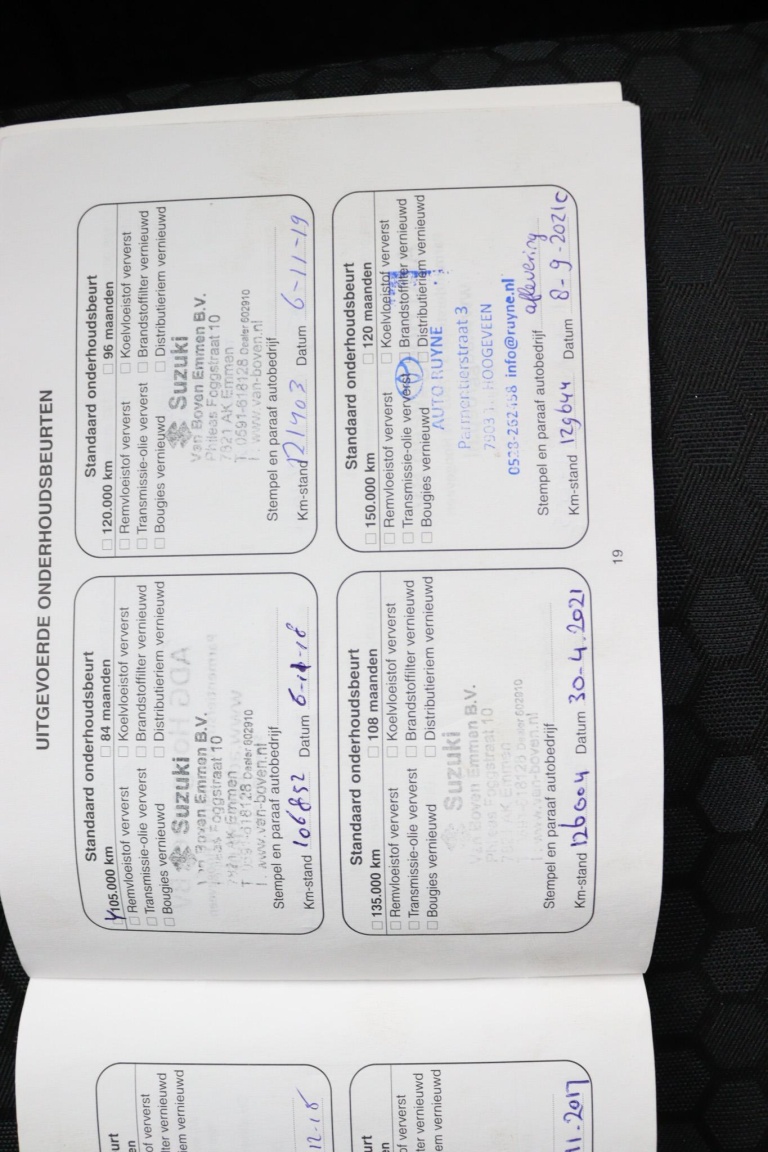 UITGEVOERDE ONDERHOUDSBEURTEN
Standaard onderhoudsbeurt
105.000 km 84 maanden
Remvloeistof ververst Koelvloeistof ververst
Transmissie-olie ververst Brandstoffilter vernieuwd
Bougies vernieuwd Distributieriem vernieuwd
Suzuki
Van Boven Emmen B.V.
Phileas Foggstraat 10
7821 AK Emmen
T. 0591-618128 Dealer 602910
I: www.van-boven.nl
Stempel en paraaf autobedrijf
Km-stand 106852 Datum 6-11-18
Standaard onderhoudsbeurt
120.000 km 96 maanden
Remvloeistof ververst Koelvloeistof ververst
Transmissie-olie ververst Brandstoffilter vernieuwd
Bougies vernieuwd Distributieriem vernieuwd
Suzuki
Van Boven Emmen B.V.
Phileas Foggstraat 10
7821 AK Emmen
T. 0591-618128 Dealer 602910
I: www.van-boven.nl
Stempel en paraaf autobedrijf
Km-stand 121403 Datum 6-11-19
Standaard onderhoudsbeurt
135.000 km 108 maanden
Remvloeistof ververst Koelvloeistof ververst
Transmissie-olie ververst Brandstoffilter vernieuwd
Bougies vernieuwd Distributieriem vernieuwd
Suzuki
Van Boven Emmen B.V.
Phileas Foggstraat 10
AK Emmen
618128 Dealer 602910
www.van-boven.nl
Stempel en paraaf autobedrijf
Km-stand 126004 Datum 30-4-2021
Standaard onderhoudsbeurt
150.000 km 120 maanden
Remvloeistof ververst Koelvloeistof ververst
Transmissie-olie ververst Brandstoffilter vernieuwd
Bougies vernieuwd Distributieriem vernieuwd
AUTO RUYNE
Parmentierstraat 3
HOOGEVEEN
info@ruyne.nl
Stempel en paraaf autobedrijf aflevering
Km-stand 129644 Datum 8-9-2021
19
ververst
vernieuwd
vernieuwd
ververst
vernieuwd
vernieuwd
11.2017